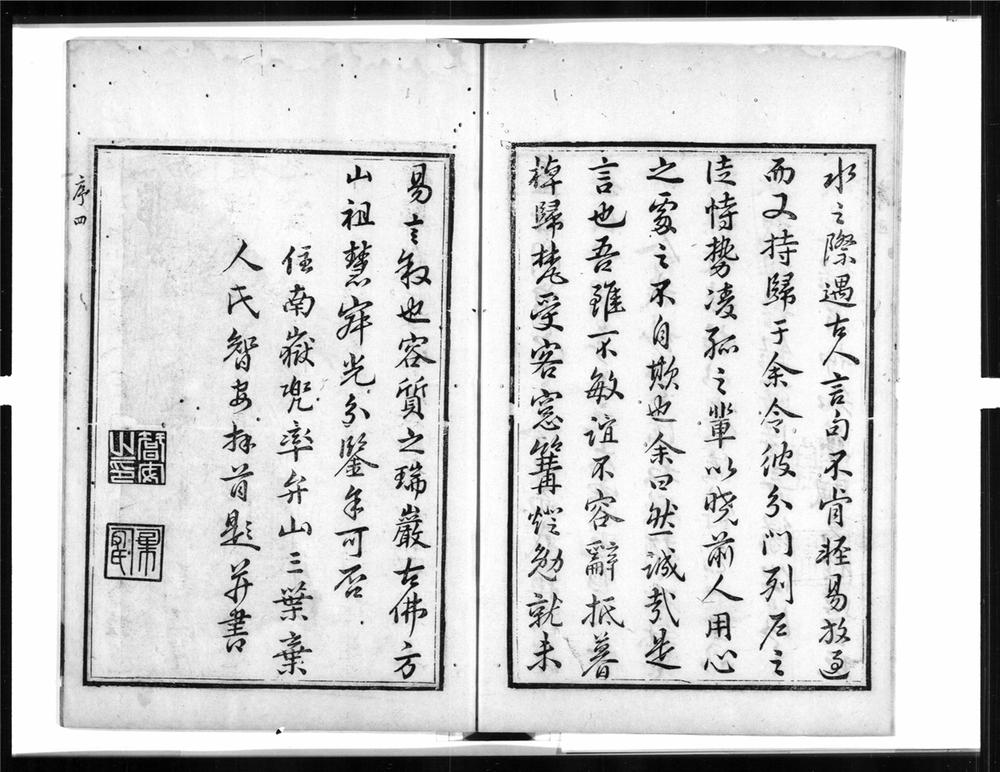 水之際遇古人言句不肯輕易放過
而又持歸于余令彼分門列戶之
徒恃勢凌孤之輩以曉前人用心
之處之不自欺也余曰然誠哉是
言也吾雖不敏誼不容辭抵暮
掉歸梵受客窓篝燈勉就未
易言敘也容質之瑞巖古佛方
山祖慧寂光分鑒年可否
住南嶽兜率弁山三葉棄
人氏智安拜首題并書
序四
智安
山印
棄
人氏